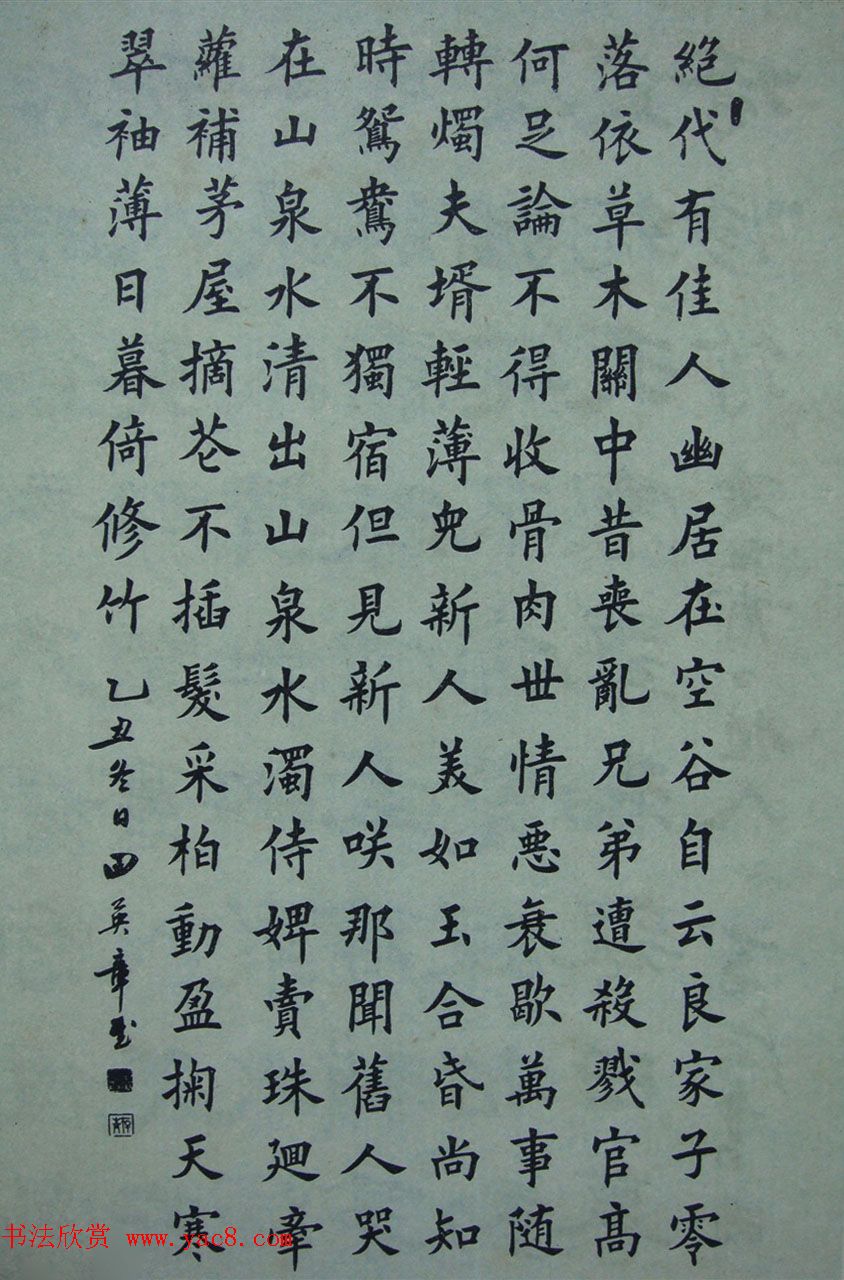 絕代有佳人幽居在空谷自云良家子零
落依草木關中昔喪亂兄弟遭殺戮官高
何足論不得收骨肉世情惡衰歇萬事随
轉燭夫壻輕薄兒新人美如玉合昏尚知
時鴛鴦不獨宿但見新人咲那聞舊人哭
在山泉水清出山泉水濁侍婢賣珠迴牽
蘿補茅屋摘花不插髮采柏動盈掬天寒
翠袖薄日暮倚修竹 乙丑冬日田英章書
书法欣赏 www.yac8.com